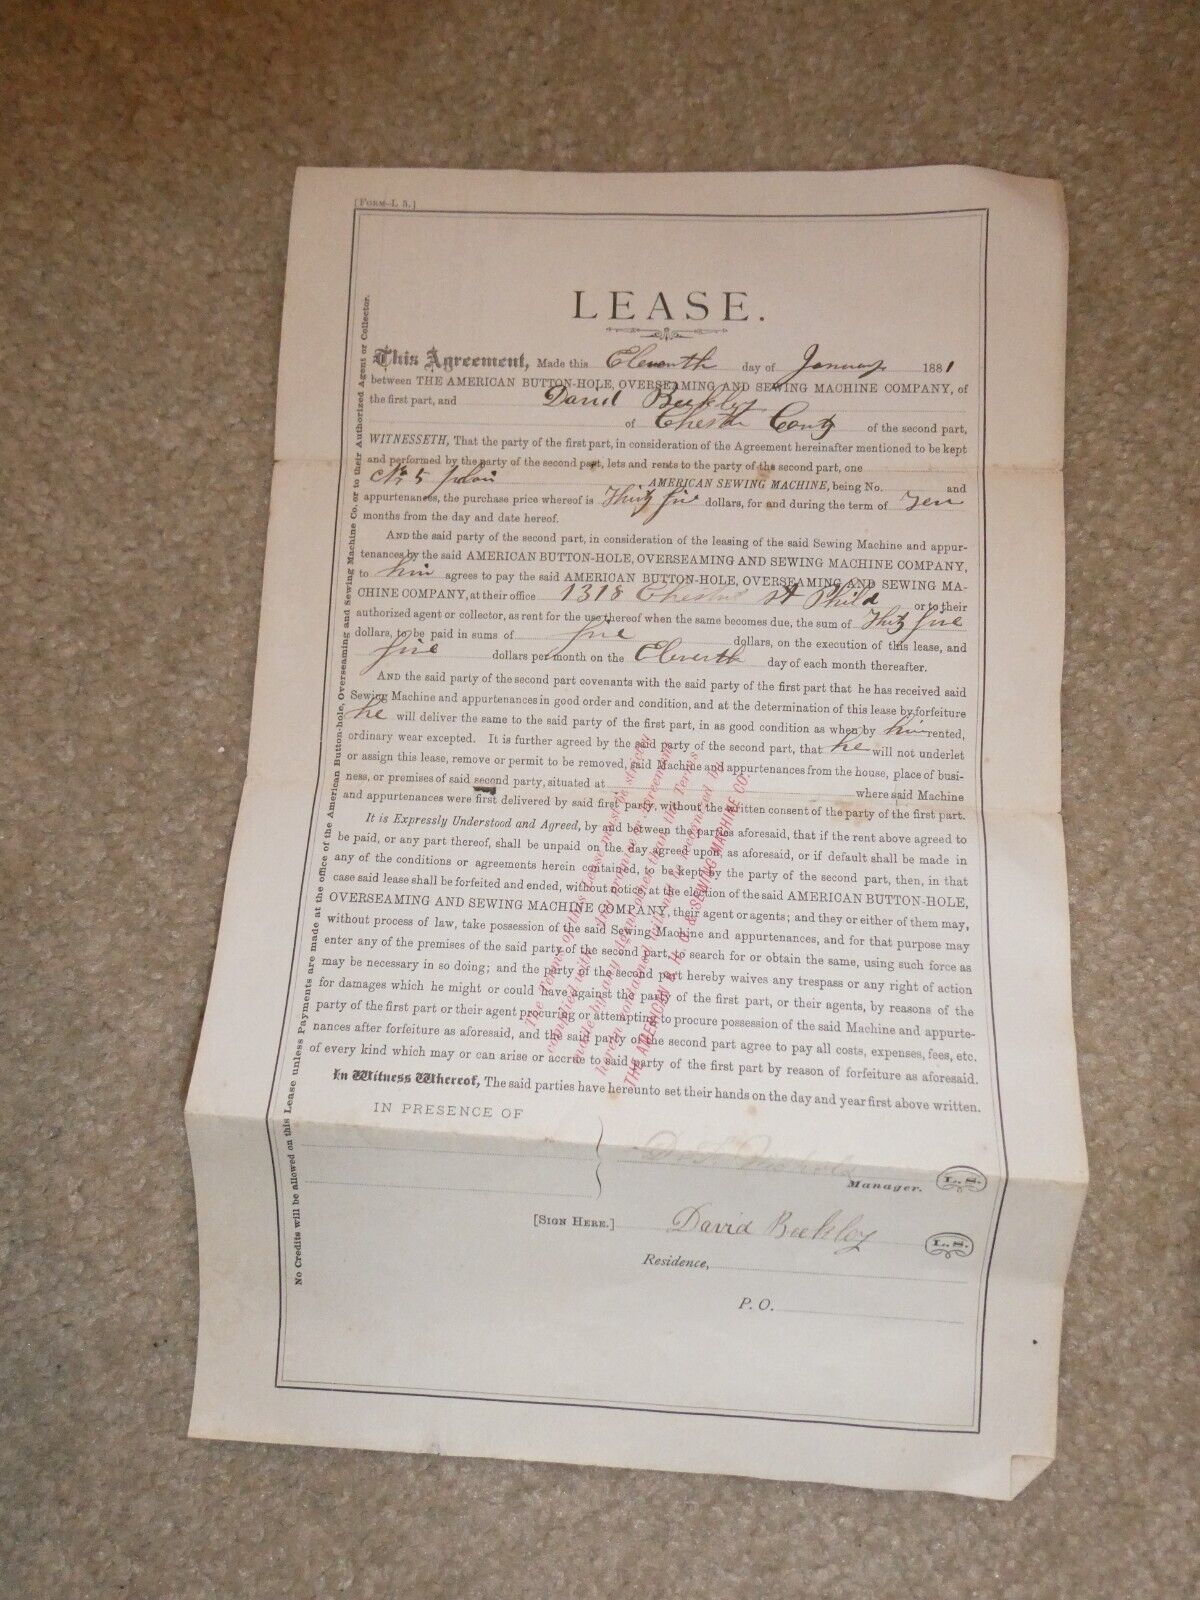 [FORM—L 5.]
LEASE.
This Agreement, Made this Eleventh day of January 1881
between THE AMERICAN BUTTON-HOLE, OVERSEAMING AND SEWING MACHINE COMPANY, of
the first part, and David Beekley
of Chester County of the second part,
WITNESSETH, That the party of the first part, in consideration of the Agreement hereinafter mentioned to be kept
and performed by the party of the second part, lets and rents to the party of the second part, one
No 5 AMERICAN SEWING MACHINE, being No. and
appurtenances, the purchase price whereof is Thirty five dollars, for and during the term of
months from the day and date hereof.
AND the said party of the second part, in consideration of the leasing of the said Sewing Machine and appur-
tenances by the said AMERICAN BUTTON-HOLE, OVERSEAMING AND SEWING MACHINE COMPANY,
to him agrees to pay the said AMERICAN BUTTON-HOLE, OVERSEAMING AND SEWING MA-
CHINE COMPANY, at their office 1318 Chestnut St Phila or to their
authorized agent or collector, as rent for the use thereof when the same becomes due, the sum of Thirty five
dollars, to be paid in sums of five dollars, on the execution of this lease, and
five dollars per month on the Eleventh day of each month thereafter.
AND the said party of the second part covenants with the said party of the first part that he has received said
Sewing Machine and appurtenances in good order and condition, and at the determination of this lease by forfeiture
he will deliver the same to the said party of the first part, in as good condition as when by him rented,
ordinary wear excepted. It is further agreed by the said party of the second part, that he will not underlet
or assign this lease, remove or permit to be removed, said Machine and appurtenances from the house, place of busi-
ness, or premises of said second party, situated at where said Machine
and appurtenances were first delivered by said first party, without the written consent of the party of the first part.
It is Expressly Understood and Agreed, by and between the parties aforesaid, that if the rent above agreed to
be paid, or any part thereof, shall be unpaid on the day agreed upon, as aforesaid, or if default shall be made in
any of the conditions or agreements herein contained, to be kept by the party of the second part, then, in that
case said lease shall be forfeited and ended, without notice, at the election of the said AMERICAN BUTTON-HOLE,
OVERSEAMING AND SEWING MACHINE COMPANY, their agent or agents; and they or either of them may,
without process of law, take possession of the said Sewing Machine and appurtenances, and for that purpose may
enter any of the premises of the said party of the second part, to search for or obtain the same, using such force as
may be necessary in so doing; and the party of the second part hereby waives any trespass or any right of action
for damages which he might or could have against the party of the first part, or their agents, by reasons of the
party of the first part or their agent procuring or attempting to procure possession of the said Machine and appurte-
nances after forfeiture as aforesaid, and the said party of the second part agree to pay all costs, expenses, fees, etc.
of every kind which may or can arise or accrue to said party of the first part by reason of forfeiture as aforesaid.
In Witness Whereof, The said parties have hereunto set their hands on the day and year first above written.
IN PRESENCE OF
Manager. L.S.
[SIGN HERE.] David Beekley L.S.
Residence,
P. O.
No Credits will be allowed on this Lease unless Payments are made at the office of the American Button-hole, Overseaming and Sewing Machine Co. or to their Authorized Agent or Collector.
The Terms of this Lease must be strictly
complied with. Any promise or Agreement
made by any Agent other than the Terms
herein contained will not be recognized by
THE AMERICAN B. H. O. & SEWING MACHINE CO.